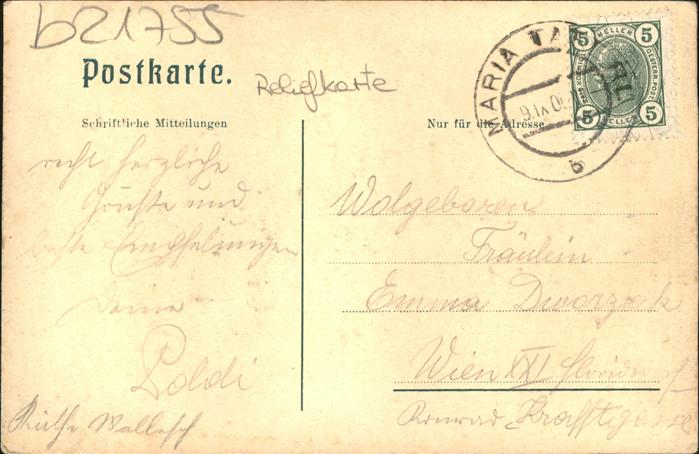 b21755
Postkarte.
Reliefkarte
Schriftliche Mitteilungen
Nur für die Adresse
MARIA TAF
9.IX 0
b
5 5
HELLER
5 5
HELLER
recht herzliche
Grüße und
beste Empfelungen
Deine
Poldi
Wolgeboren
Fräulein
Emma Dworzak
Wien XXI Floridsdorf
Konrad Krafftgasse